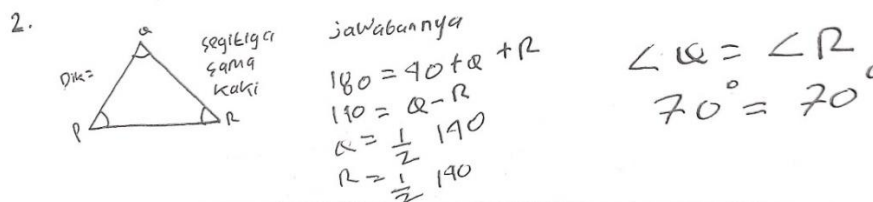 2.
Dik=
Q
P
R
segitiga
sama
kaki
jawabannya
180 = 40 + Q + R
140 = Q - R
Q = 1/2 140
R = 1/2 140
∠Q = ∠R
70° = 70°